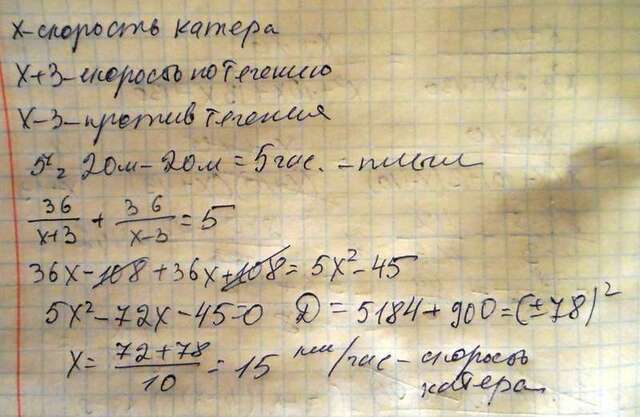 x-скорость катера
x+3-скорость по течению
x-3-против течения
5ч 20м-20м=5час. -плыл
36/(x+3) + 36/(x-3) = 5
36x-108+36x+108=5x²-45
5x²-72x-45=0 D=5184+900=(±78)²
x= (72+78)/10 = 15 км/час-скорость катера